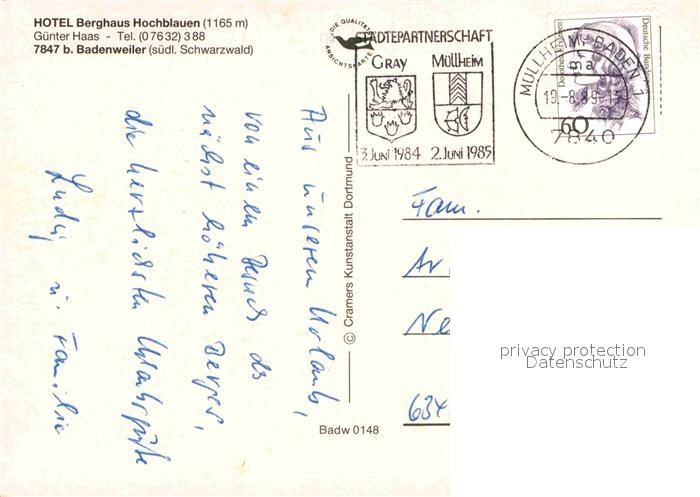 HOTEL Berghaus Hochblauen (1165 m)
Günter Haas - Tel. (0 76 32) 3 88
7847 b. Badenweiler (südl. Schwarzwald)
DIE QUALITÄTS
ANSICHTSKARTE
STÄDTEPARTNERSCHAFT
GRAY MÜLLHEIM
3. JUNI 1984 2. JUNI 1985
MÜLLHEIM, BADEN 1
a
19.-8.89-
7840
Deutsche Bundespost
60
Aus unserem Urlaub,
von einem Besuch des
nächst höheren Berges,
die herzlichsten Urlaubsgrüße
Ludwig u. Familie
© Cramers Kunstanstalt Dortmund
Badw 0148
Fam.
Ar
Ne
634
privacy protection
Datenschutz